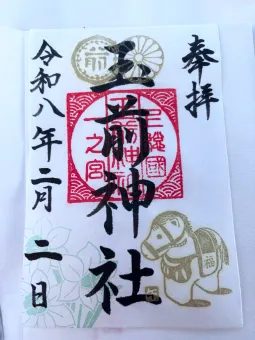 奉拝
玉前神社
上総國
一之宮
前
福
令和八年二月二日